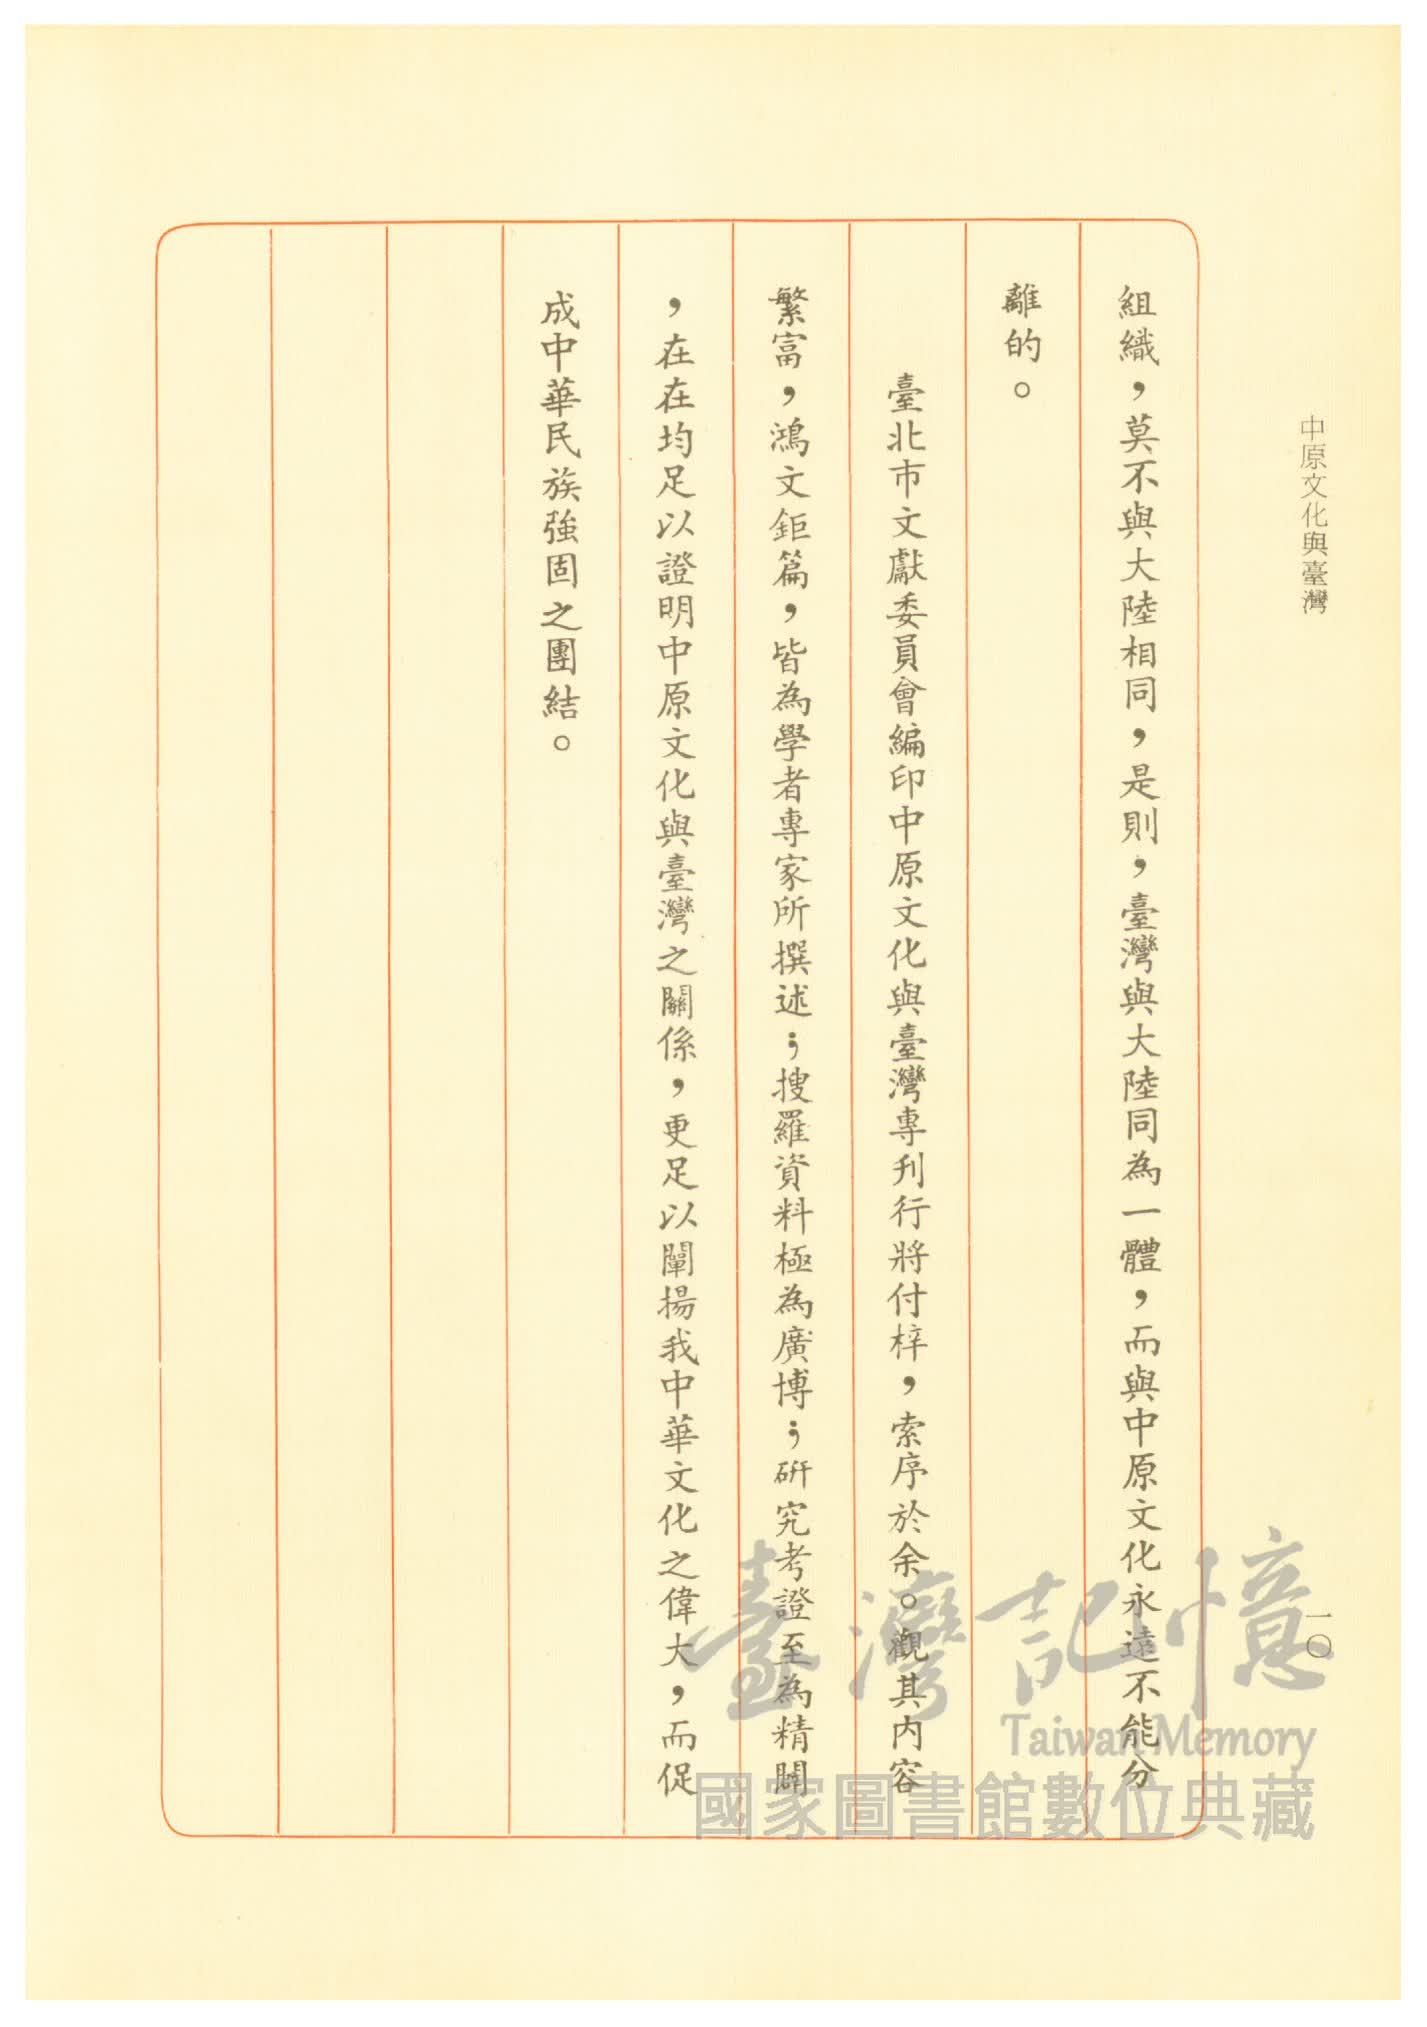 中原文化與臺灣
一〇
組織，莫不與大陸相同，是則，臺灣與大陸同為一體，而與中原文化永遠不能分
離的。
臺北市文獻委員會編印中原文化與臺灣專刊行將付梓，索序於余。觀其內容
繁富，鴻文鉅篇，皆為學者專家所撰述；搜羅資料極為廣博；研究考證至為精闢
，在在均足以證明中原文化與臺灣之關係，更足以闡揚我中華文化之偉大，而促
成中華民族強固之團結。
臺灣記憶
Taiwan Memory
國家圖書館數位典藏